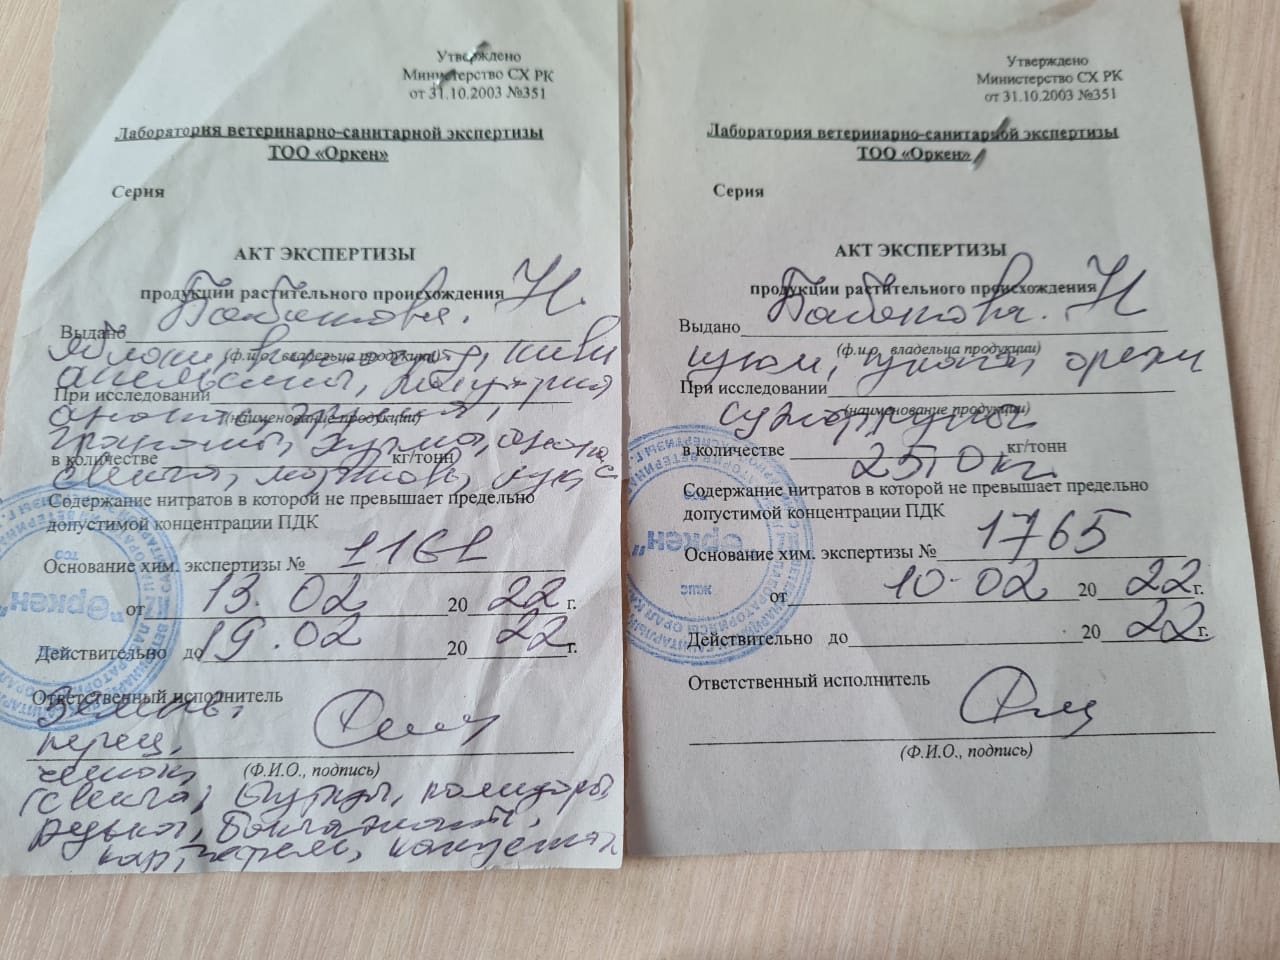 Утверждено
Министерство СХ РК
от 31.10.2003 №351
Лаборатория ветеринарно-санитарной экспертизы
ТОО «Оркен»
Серия
АКТ ЭКСПЕРТИЗЫ
продукции растительного происхождения
Выдано Бабакова. Н.
(ф.и.о. владельца продукции)
яблоки, виноград, киви
апельсины,
При исследовании
(наименование продукции)
груша,
гранаты, хурма,
в количестве кг/тонн
свекла, морковь, лук
Содержание нитратов в которой не превышает предельно
допустимой концентрации ПДК
Основание хим. экспертизы № 1161
от 13.02 2022 г.
Действительно до 19.02 2022 г.
Ответственный исполнитель
зелень,
перец,
чеснок
(Ф.И.О., подпись)
(свекла, огурцы, помидоры,
редька, баклажаны,
картофель, капуста
Утверждено
Министерство СХ РК
от 31.10.2003 №351
Лаборатория ветеринарно-санитарной экспертизы
ТОО «Оркен»
Серия
АКТ ЭКСПЕРТИЗЫ
продукции растительного происхождения
Выдано Бабакова. Н
(ф.и.о. владельца продукции)
изюм, курага, орехи
При исследовании
(наименование продукции)
сухофрукты
в количестве кг/тонн
2510 кг
Содержание нитратов в которой не превышает предельно
допустимой концентрации ПДК
Основание хим. экспертизы № 1765
от 10-02 2022 г.
Действительно до 2022 г.
Ответственный исполнитель
(Ф.И.О., подпись)
"Өркен"
ТОО
"Өркен"
ЖШС